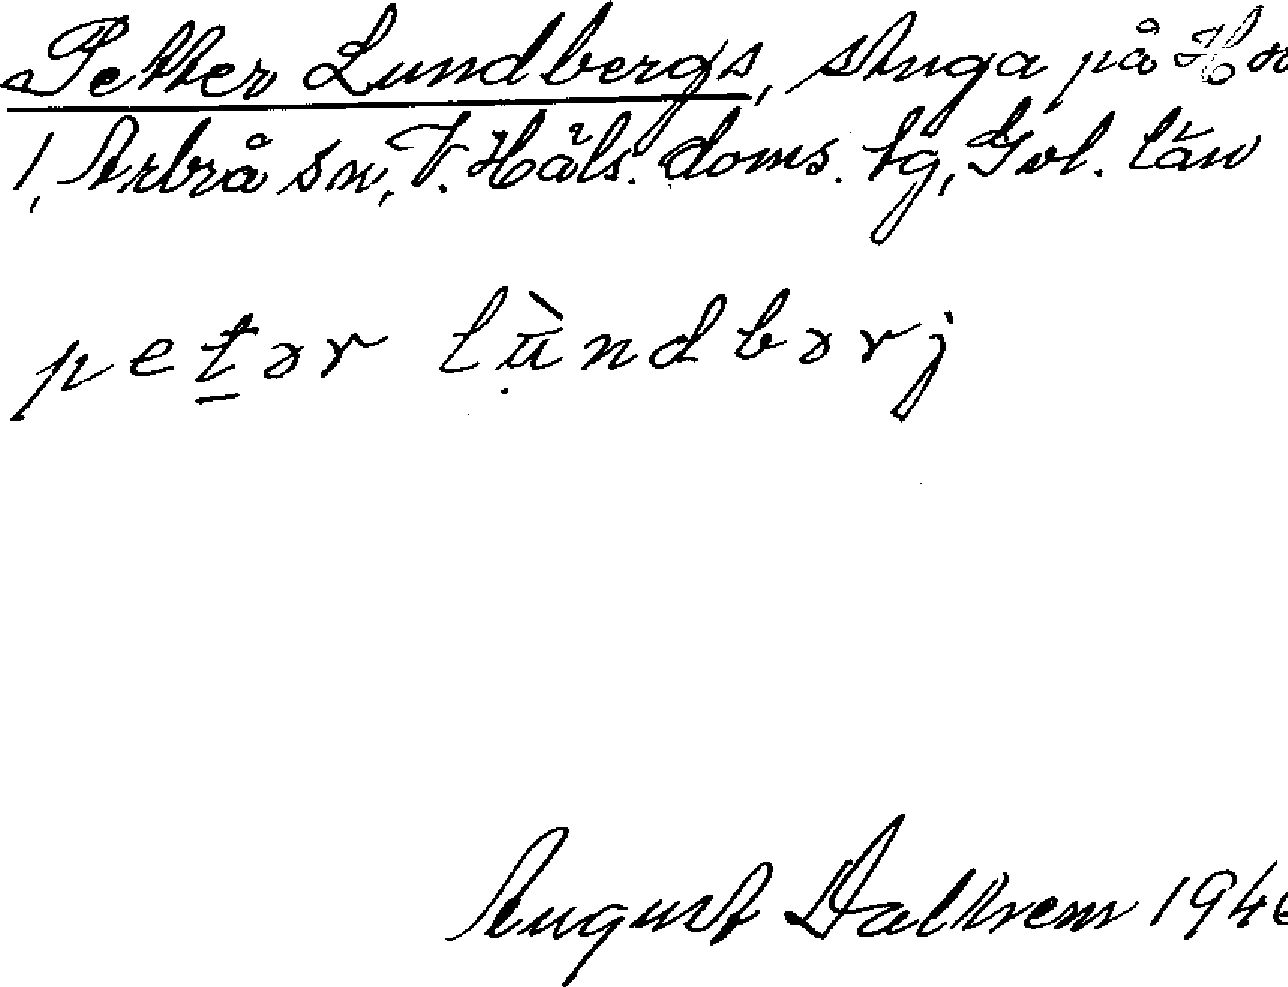 Petter Lundbergs, stuga på
1, Arbrå sn, V. Häls. doms. tg, Gvl. län
petər lùndbərj
August Dalkvem